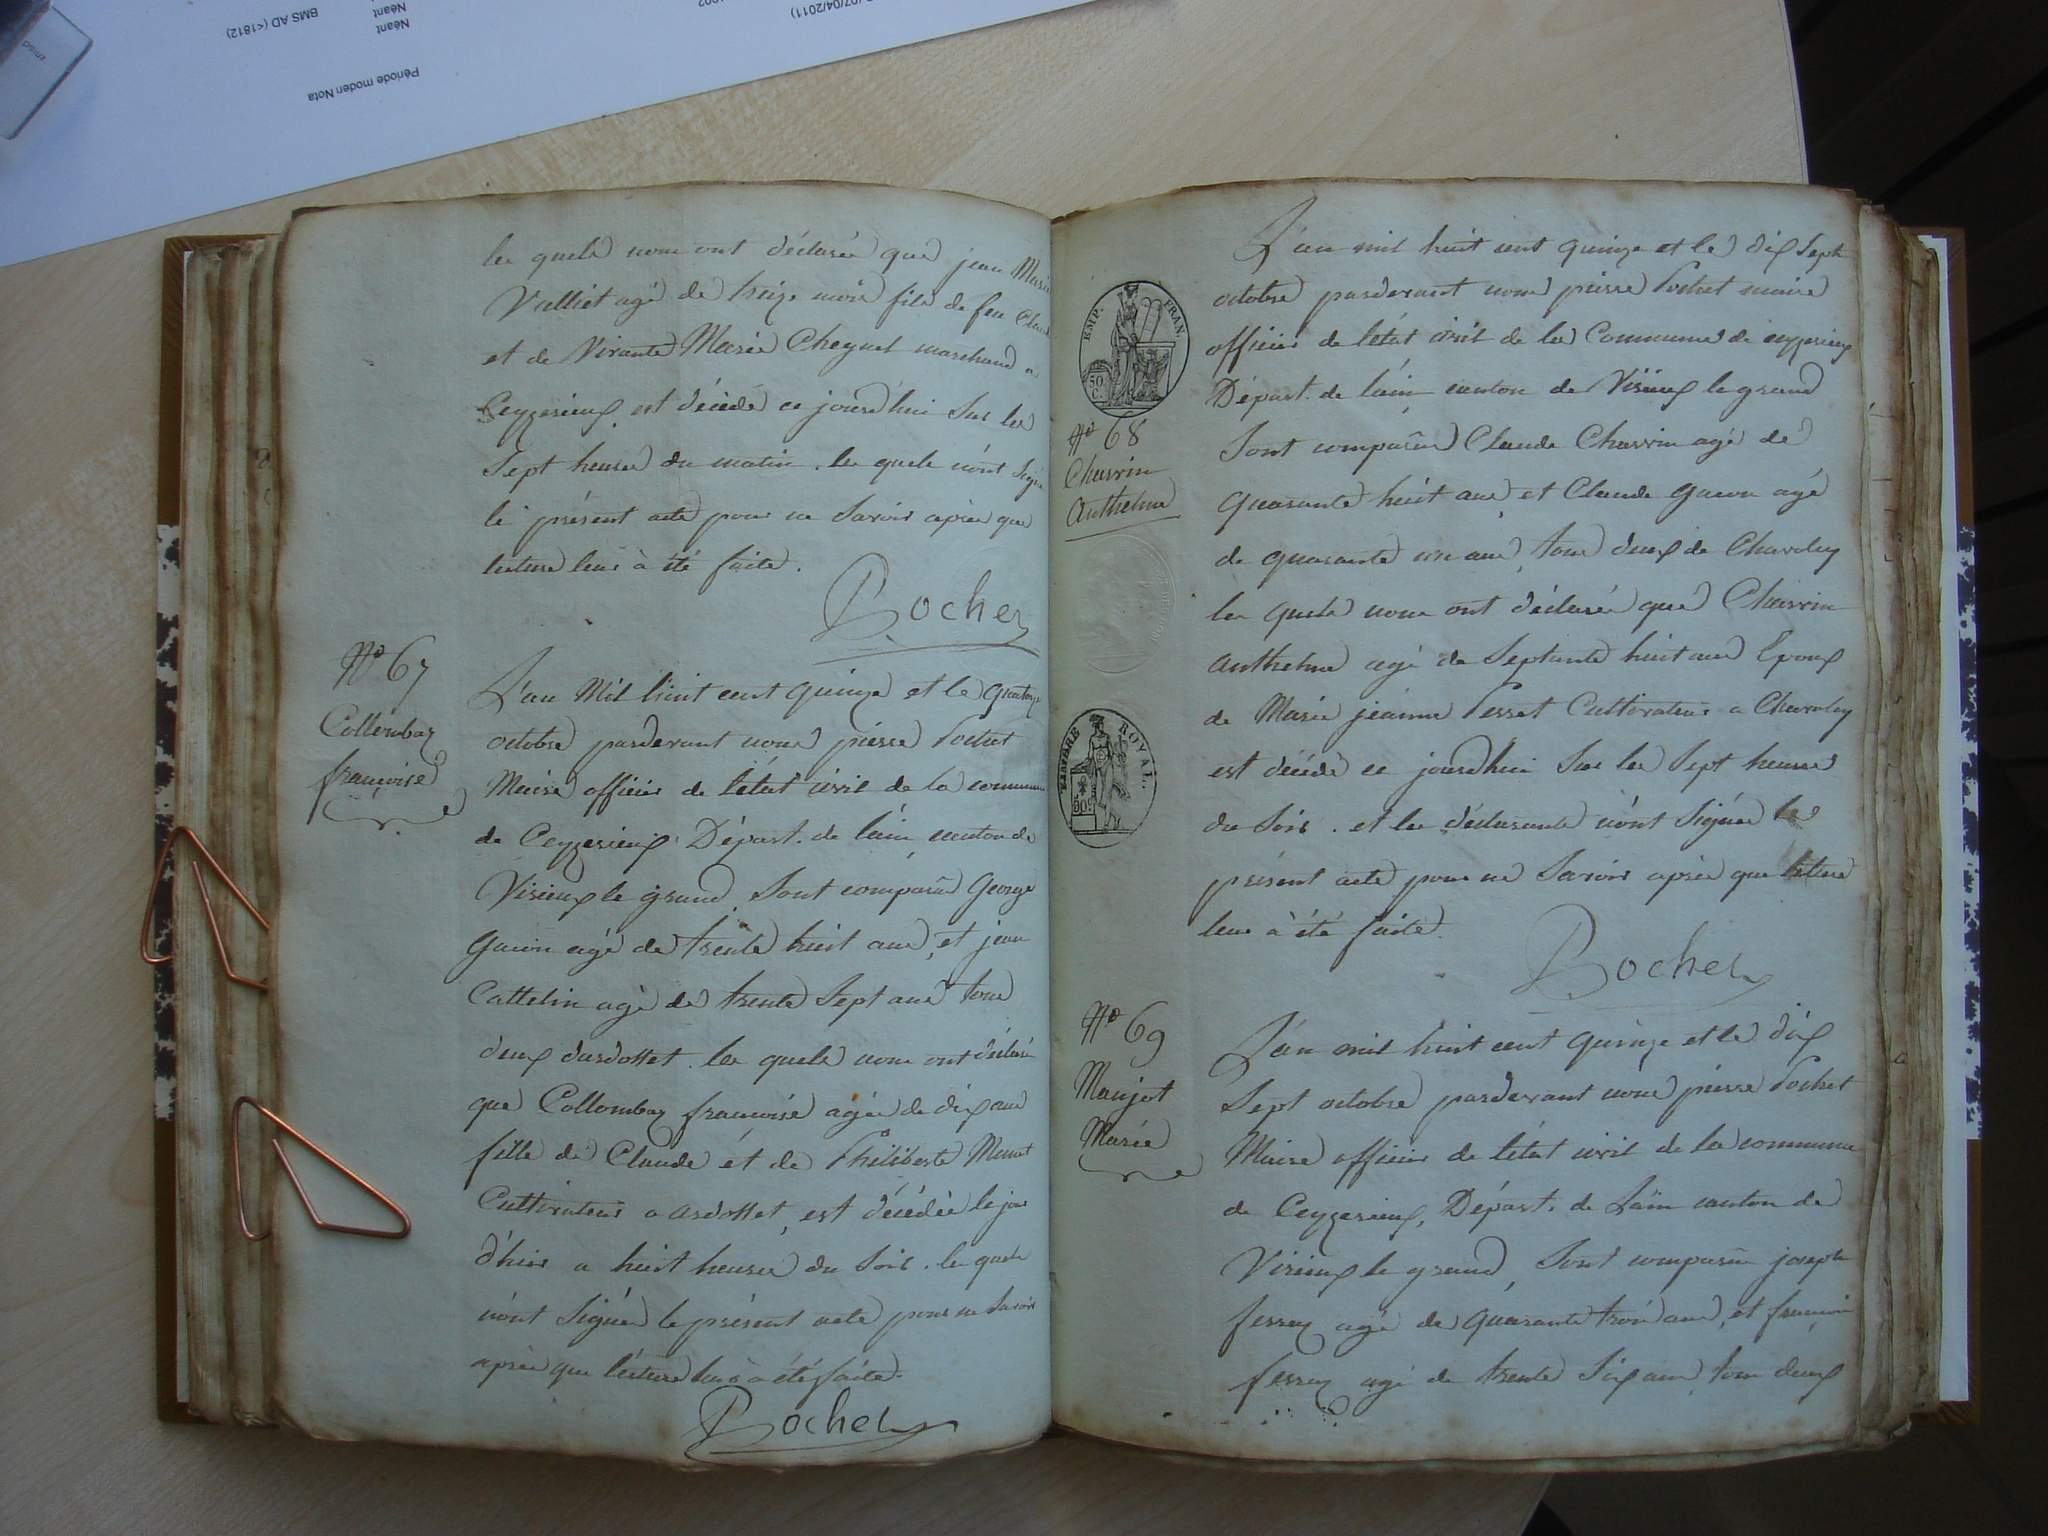 BMS AD (<1812)
Néant
Néant
07/04/2011)
Période moder Nota
les quels nous ont déclarés que jean Marie
Valliet agé de treize mois fils de feu
et de Marie Cheynet marchand a
Ceyzerieux est décédé ce jourd'hui sur les
Sept heures du matin. les quels n'ont signé
le présent acte pour ne savoir après que
lecture leur à été faite.
Pochet
N° 67
Collombay
françoise
L'an Mil huit cent quinze et le quatorze
octobre pardevant nous pierre Pochet
Maire officier de l'état civil de la commune
de Ceyzerieux Départ. de l'ain canton de
Virieux le grand Sont comparus George
Gacon agé de trente huit ans, et jean
Cattelin agé de trente Sept ans tous
deux d'ardosset. les quels nous ont déclaré
que Collombay françoise agée de dix ans
fille de Claude ét de Philiberte Monet
Cultivateur a ardosset, est décédée le jour
d'hier a huit heures du Soir. les quels
n'ont Signés le présent acte pour ne Savoir
après que lécture leur à été faite.
Pochet
EMP. FRAN.
50 C.
N° 68
Charvin
Anthelme
TIMBRE ROYAL.
L'an mil huit cent quinze et le dix Sept
octobre pardevant nous pierre Pochet maire
officier de l'état civil de la Commune de ceyzerieux
Départ. de l'ain canton de Virieux le grand
Sont comparus Claude Charvin agé de
quarante huit ans, et Claude Gacon agé
de quarante un ans, tous deux de Chavoley
les quels nous ont déclarés que Charvin
anthelme agé de Septante huit ans Epoux
de Marie jeanne Perret Cultivateur a Chavoley
est décédé ce jourd'hui Sur les Sept heures
du Soir. et les déclarants n'ont Signés le
présent acte pour ne Savoir après que lecture
leur à été faite.
Pochet
N° 69
Manjot
Marie
L'an mil huit cent quinze et le dix
Sept octobre pardevant nous pierre Pochet
Maire officier de l'état civil de la commune
de Ceyzerieux, Départ. de L'ain canton de
Virieux le grand, Sont comparus joseph
ferrey agé de quarante trois ans, et francois
ferrey agé de trente Six ans, tous deux